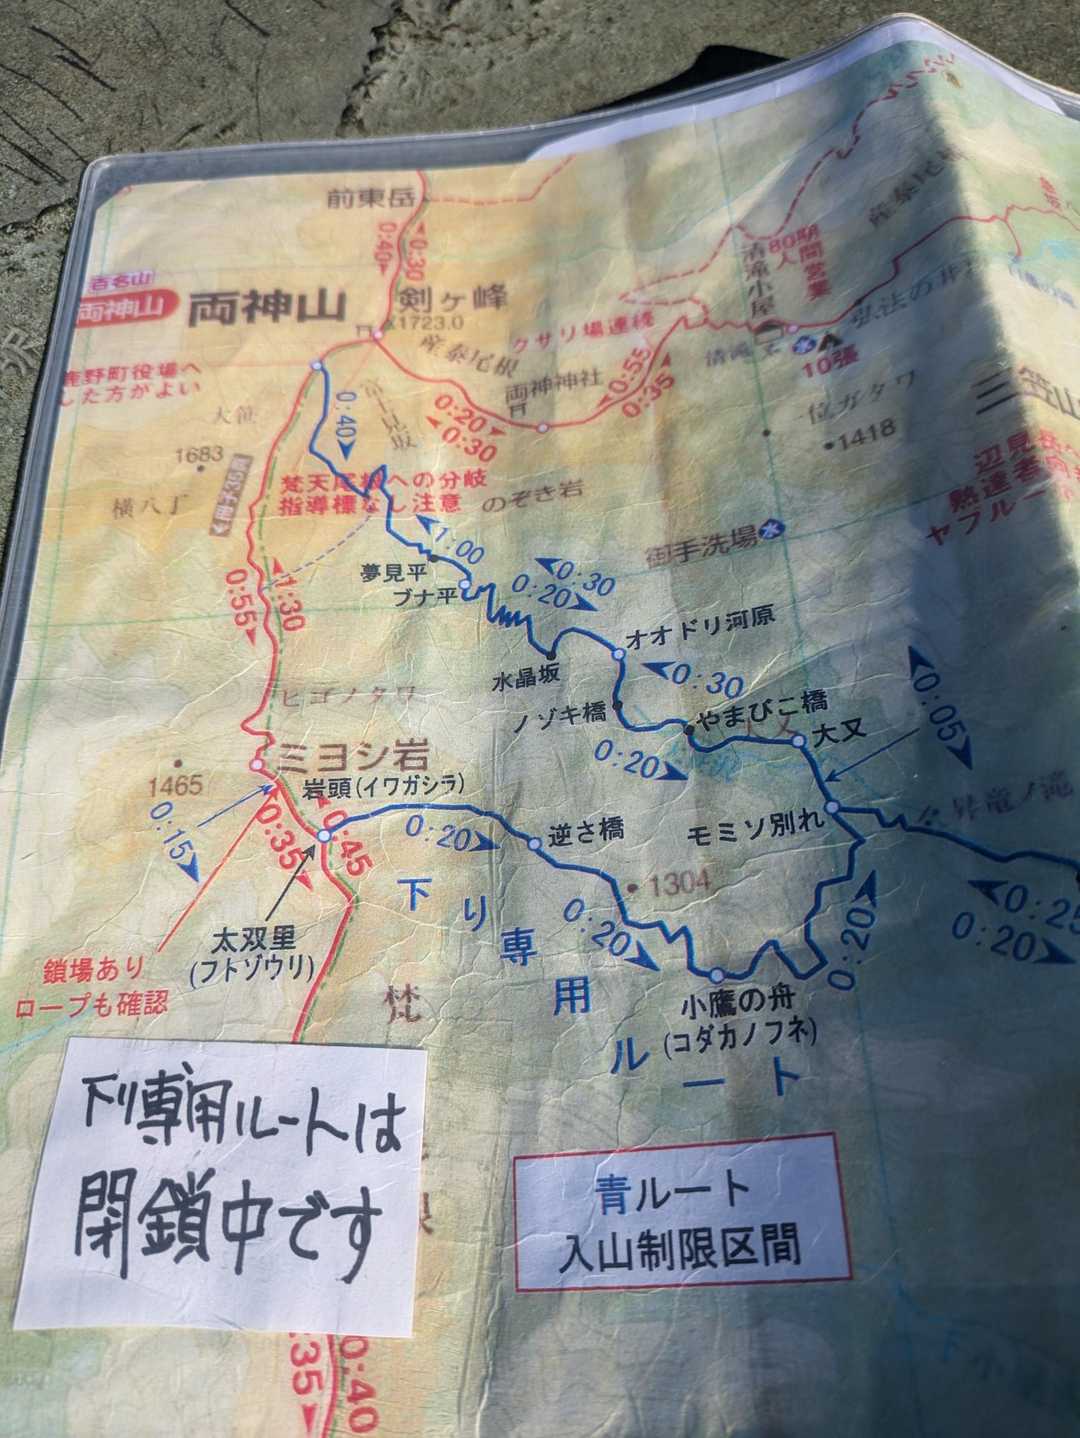 前東岳
0:40
0:30
百名山
両神山
両神山
剣ヶ峰
1723.0
産泰尾根
クサリ場連続
両神神社
0:55
0:35
0:20
0:30
清滝小屋
80人
期間営業
10張
弘法の井戸
産泰尾
鹿野町役場へ
した方がよい
大笹
1683
横八丁
0:40
富士見坂
梵天尾根への分岐
指導標なし注意
のぞき岩
御手洗場
水
一位ガタワ
1418
三笠山
辺見岳へ
熱達者向
ヤブルー
1:00
夢見平
ブナ平
0:30
0:20
オオドリ河原
水晶坂
ノゾキ橋
0:30
やまびこ橋
0:20
大又
0:05
0:55
1:30
ヒゴノタワ
ミヨシ岩
1465
岩頭(イワガシラ)
0:15
0:35
0:45
0:20
逆さ橋
モミソ別れ
昇竜ノ滝
1304
0:20
0:20
0:25
0:20
下り専用ルート
太双里
(フトゾウリ)
鎖場あり
ロープも確認
小鷹の舟
(コダカノフネ)
梵
下り専用ルートは
閉鎖中です
青ルート
入山制限区間
:35
0:40